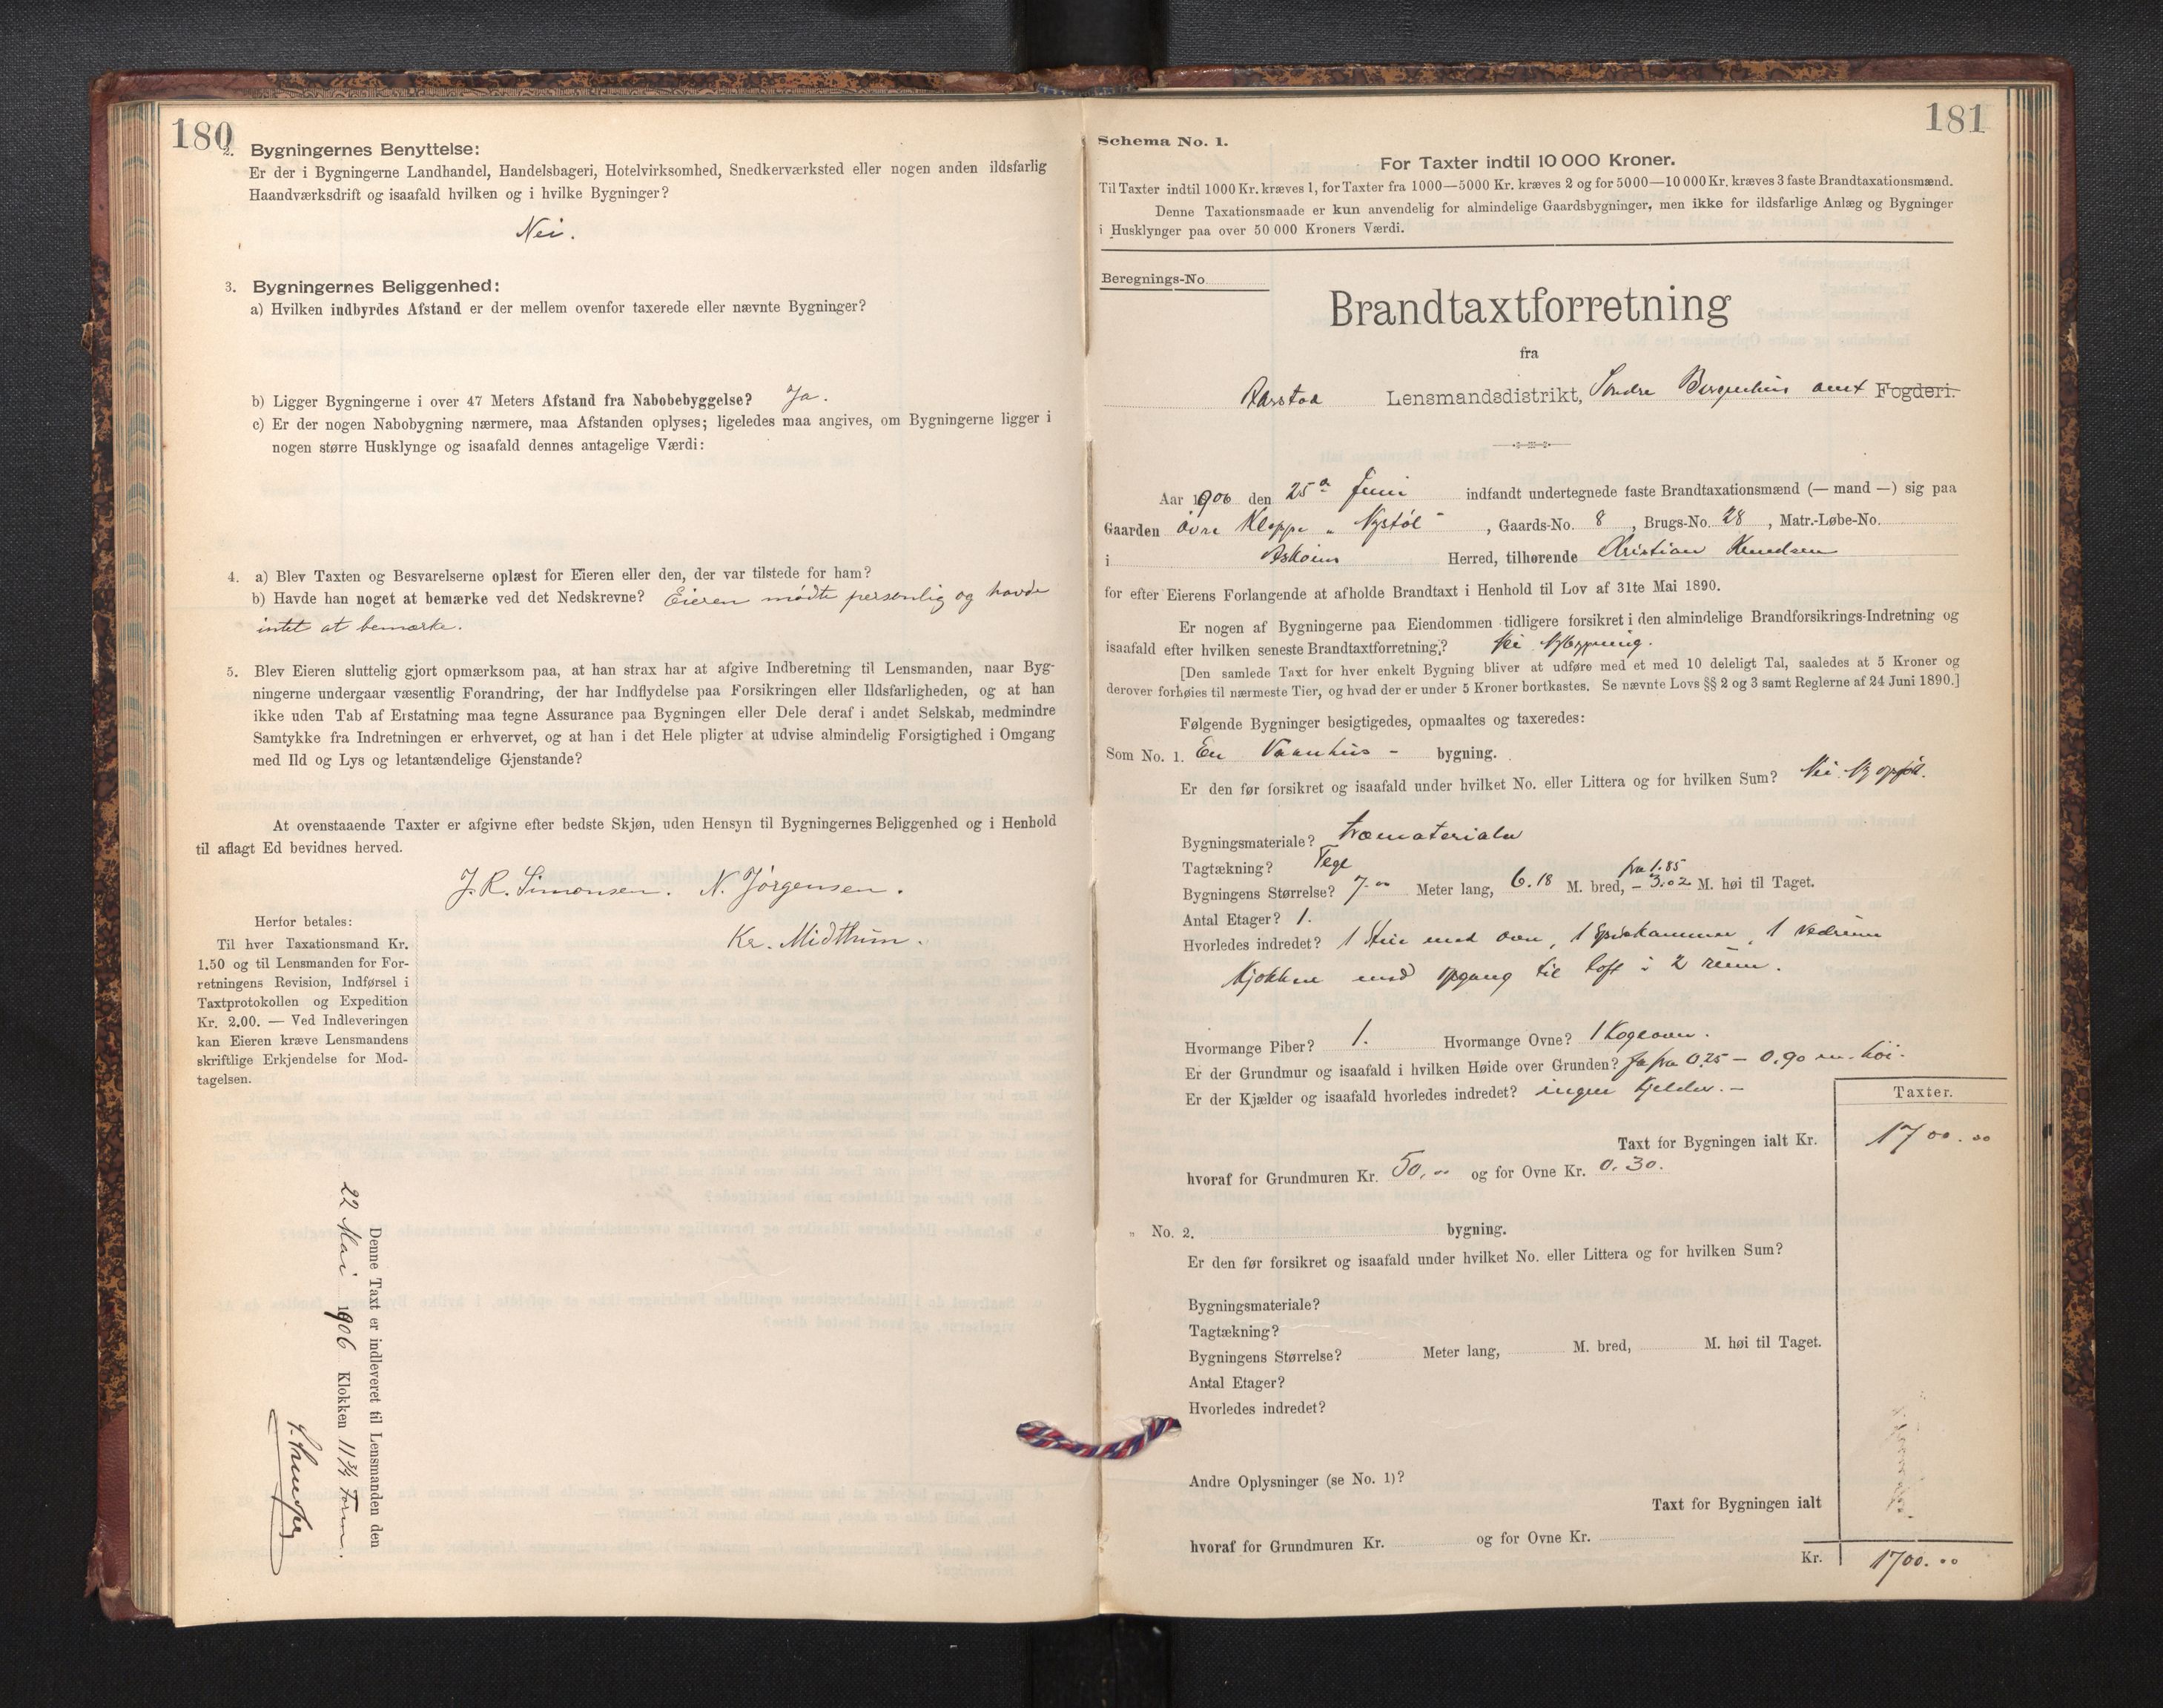 180
2. Bygningernes Benyttelse:
Er der i Bygningerne Landhandel, Handelsbageri, Hotelvirksomhed, Snedkerværksted eller nogen anden ildsfarlig
Haandværksdrift og isaafald hvilken og i hvilke Bygninger?
Nei.
3. Bygningernes Beliggenhed:
a) Hvilken indbyrdes Afstand er der mellem ovenfor taxerede eller nævnte Bygninger?
b) Ligger Bygningerne i over 47 Meters Afstand fra Nabobebyggelse? Ja.
c) Er der nogen Nabobygning nærmere, maa Afstanden oplyses; ligeledes maa angives, om Bygningerne ligger i
nogen større Husklynge og isaafald dennes antagelige Værdi:
4. a) Blev Taxten og Besvarelserne oplæst for Eieren eller den, der var tilstede for ham?
b) Havde han noget at bemærke ved det Nedskrevne? Eieren mødte personlig og havde
intet at bemærke.
5. Blev Eieren sluttelig gjort opmærksom paa, at han strax har at afgive Indberetning til Lensmanden, naar Byg-
ningerne undergaar væsentlig Forandring, der har Indflydelse paa Forsikringen eller Ildsfarligheden, og at han
ikke uden Tab af Erstatning maa tegne Assurance paa Bygningen eller Dele deraf i andet Selskab, medmindre
Samtykke fra Indretningen er erhvervet, og at han i det Hele pligter at udvise almindelig Forsigtighed i Omgang
med Ild og Lys og letantændelige Gjenstande?
At ovenstaaende Taxter er afgivne efter bedste Skjøn, uden Hensyn til Bygningernes Beliggenhed og i Henhold
til aflagt Ed bevidnes herved.
J. R. Simonsen. N. Jørgensen.
Kr. Midthun.
Herfor betales:
Til hver Taxationsmand Kr.
1.50 og til Lensmanden for For-
retningens Revision, Indførsel i
Taxtprotokollen og Expedition
Kr. 2.00. — Ved Indleveringen
kan Eieren kræve Lensmandens
skriftlige Erkjendelse for Mod-
tagelsen.
Denne Taxt er indleveret til Lensmanden den
22 Mai 1906 Klokken 11 3/4 Form.
181
Schema No. 1.
For Taxter indtil 10 000 Kroner.
Til Taxter indtil 1000 Kr. kræves 1, for Taxter fra 1000—5000 Kr. kræves 2 og for 5000—10 000 Kr. kræves 3 faste Brandtaxationsmænd.
Denne Taxationsmaade er kun anvendelig for almindelige Gaardsbygninger, men ikke for ildsfarlige Anlæg og Bygninger
i Husklynger paa over 50 000 Kroners Værdi.
Beregnings-No.
Brandtaxtforretning
fra
Aarstad Lensmandsdistrikt, Søndre Bergenhus amt Fogderi.
Aar 1906 den 25de Juni indfandt undertegnede faste Brandtaxationsmænd (— mand —) sig paa
Gaarden øvre Kleppe „Nystøl" , Gaards-No. 8 , Brugs-No. 28 , Matr.-Løbe-No.
i Askøens Herred, tilhørende Kristian Knudsen
for efter Eierens Forlangende at afholde Brandtaxt i Henhold til Lov af 31te Mai 1890.
Er nogen af Bygningerne paa Eiendommen tidligere forsikret i den almindelige Brandforsikrings-Indretning og
isaafald efter hvilken seneste Brandtaxtforretning? Nei
[Den samlede Taxt for hver enkelt Bygning bliver at udføre med et med 10 deleligt Tal, saaledes at 5 Kroner og
derover forhøies til nærmeste Tier, og hvad der er under 5 Kroner bortkastes. Se nævnte Lovs §§ 2 og 3 samt Reglerne af 24 Juni 1890.]
Følgende Bygninger besigtigedes, opmaaltes og taxeredes:
Som No. 1. En Vaanhus - bygning.
Er den før forsikret og isaafald under hvilket No. eller Littera og for hvilken Sum? Nei. Ny opført.
Bygningsmateriale? træmaterialer
Tagtækning? Tegl
fra 1.85
Bygningens Størrelse? 7.00 Meter lang, 6.18 M. bred, – 3.02 M. høi til Taget.
Antal Etager? 1.
Hvorledes indredet? 1 Stue med ovn, 1 Spiskammer, 1 Vedrum
Kjøkken med opgang til Loft i 2 rum.
Hvormange Piber? 1. Hvormange Ovne? 1 Kogeovn.
Er der Grundmur og isaafald i hvilken Høide over Grunden? Ja fra 0,25 – 0.90 m. høi.
Er der Kjælder og isaafald hvorledes indredet? ingen kjelder. –
Taxter.
Taxt for Bygningen ialt Kr. 1700.00
hvoraf for Grundmuren Kr. 50,00 og for Ovne Kr. 0.30.
„ No. 2. bygning.
Er den før forsikret og isaafald under hvilket No. eller Littera og for hvilken Sum?
Bygningsmateriale?
Tagtækning?
Bygningens Størrelse? Meter lang, M. bred, M. høi til Taget.
Antal Etager?
Hvorledes indredet?
Andre Oplysninger (se No. 1)?
Taxt for Bygningen ialt
hvoraf for Grundmuren Kr. og for Ovne Kr.
Kr. 1700.00